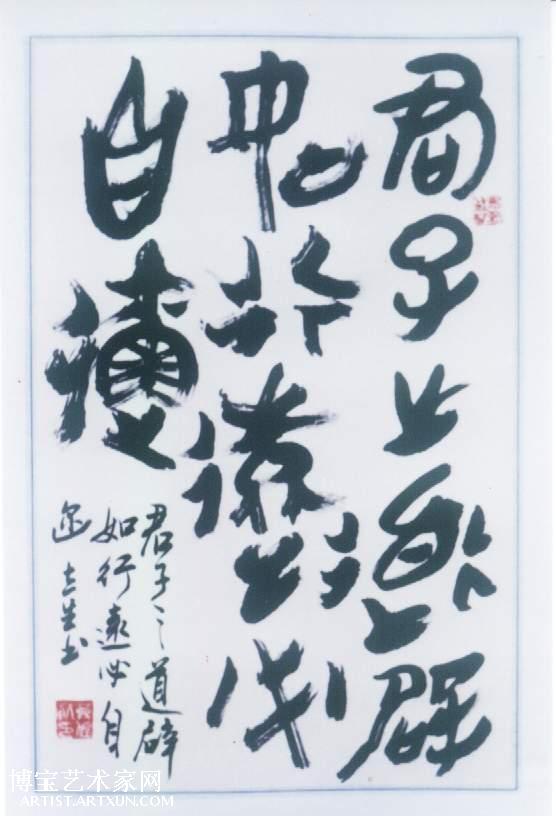 君子之道辟
如行遠必
自邇
君子之道辟
如行遠必自
迩 生书
博宝艺术家网
ARTIST.ARTXUN.COM